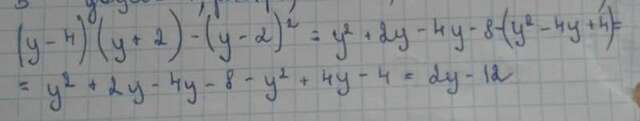 (y-4)(y+2)-(y-2)² = y²+2y-4y-8-(y²-4y+4)=
= y²+2y-4y-8-y²+4y-4=2y-12